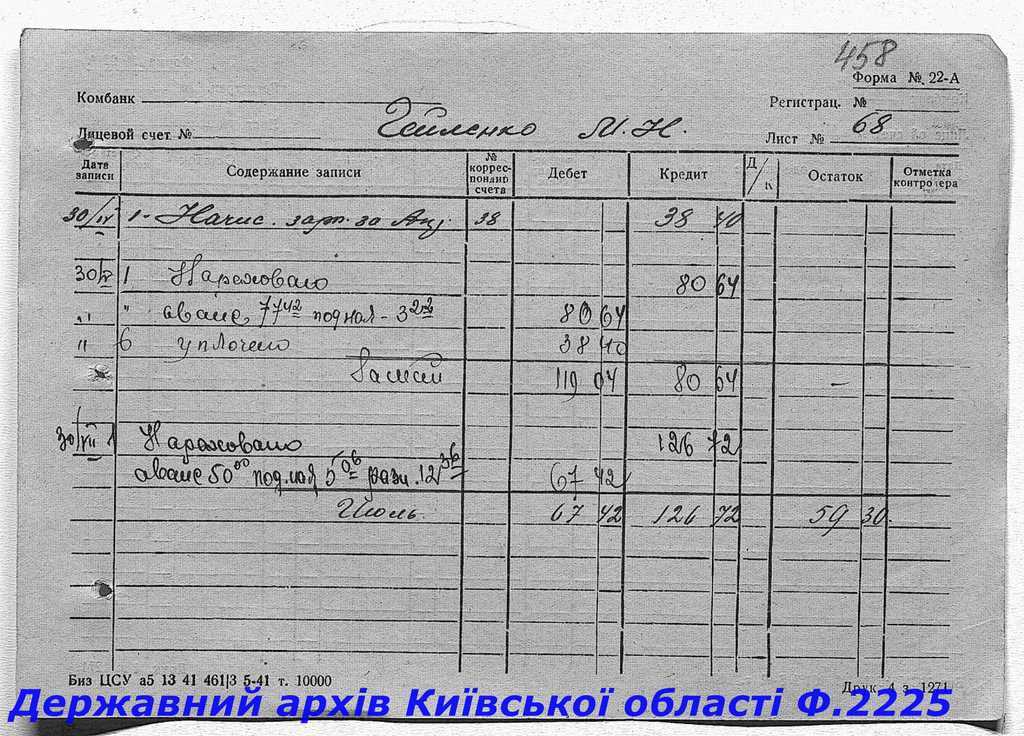 458
Форма № 22-А
Комбанк
Регистрац. №
Лицевой счет №
Гейленко М.Н.
Лист № 68
Дата записи
Содержание записи
№ коррес-пондир счета
Дебет
Кредит
Д/К
Остаток
Отметка контролера
30/IV 1 - Начис. зарп. за Апр. 38 38 40
30/V 1 Нараховано 80 64
" " аванс 77 42 под нал - 3 22 80 64
" 6 уплочено 38 40
119 04 80 64 —
30/VII 1 Нараховано 126 72
аванс 50 00 под. нал 5 06 разн. 12 36 67 42
Июль 67 42 126 72 59 30
Биз ЦСУ а5 13 41 461|3 5-41 т. 10000
Друк 4 з. 1271
Державний архів Київської області Ф.2225